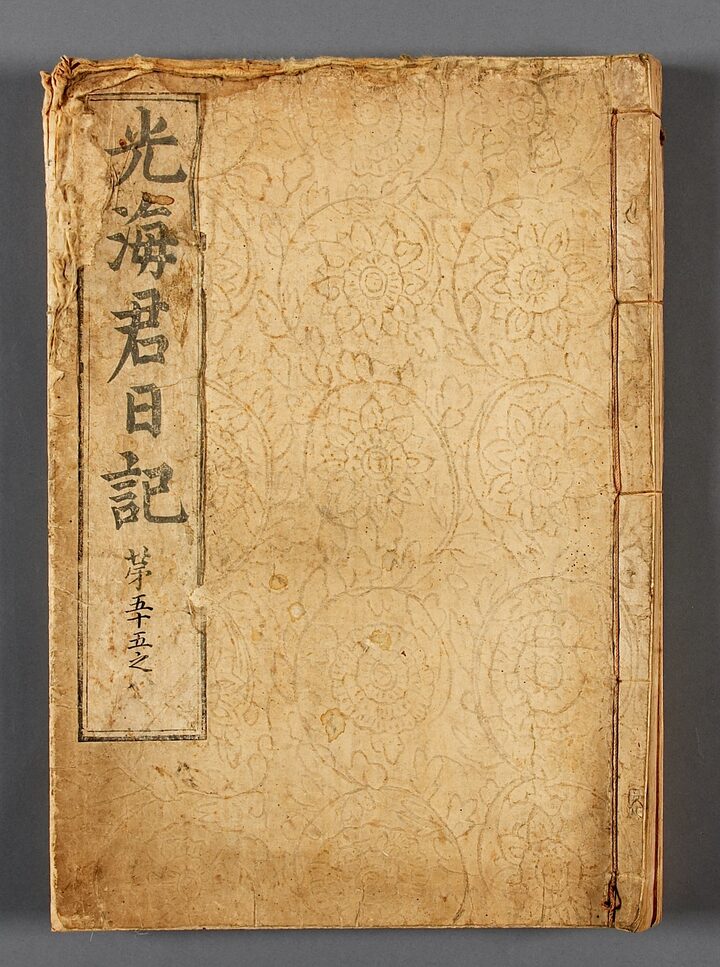 光海君日記 苐五十五之